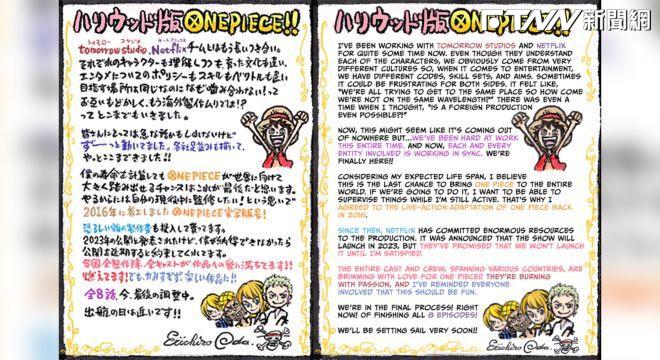 ハリウッド版ONEPIECE!!
トゥモロー スタジオ ネットフリックス
tomorrow studio、Netflixチームとはもう長いつき合い。
それぞれのキャラクターも理解しつつも、育った文化も違い、
エンタメについてのポリシーもスキルもベクトルも違い
目指す場所は同じなのになぜ噛み合わない!?って
お互いもどかしく、もう海外製作ムリでは!?
ってとこまでもいきました。
皆さんにとっては急な
ずーっと動いてました。
やっとここまできました!!
僕の寿命を計算してもONEPIECEが世界に向けて
大きく踏み出せるチャンスはこれが最後だと思います。
やるからには自身の現役中に監修したい!という思いで
2016年に
2023年の公開と発表されたけど、僕が納得できなかったら
公開は延期すると約束してくれてます。
燃えてます!!
全8話、今、最後の調整中。
出航の日は近いです!!
Eiichiro Oda.
ハリウッド版ONEPIECE!!
新聞網
I'VE BEEN WORKING WITH TOMORROW STUDIOS AND NETFLIX
FOR QUITE SOME TIME NOW. EVEN THOUGH THEY UNDERSTAND
EACH OF THE CHARACTERS, WE OBVIOUSLY COME FROM VERY
DIFFERENT CULTURES SO, WHEN IT COMES TO ENTERTAINMENT,
WE HAVE DIFFERENT CODES, SKILL SETS, AND AIMS. SOMETIMES
IT COULD BE FRUSTRATING FOR BOTH SIDES. IT FELT LIKE,
"WE'RE ALL TRYING TO GET TO THE SAME PLACE SO HOW COME
WE'RE NOT ON THE SAME WAVELENGTH?" THERE WAS EVEN A
TIME WHEN I THOUGHT, "IS A FOREIGN PRODUCTION
EVEN POSSIBLE?!"
NOW, THIS MIGHT SEEM LIKE IT'S COMING OUT
OF NOWHERE BUT...WE'VE BEEN HARD AT WORK
THIS ENTIRE TIME. AND NOW, EACH AND EVERY
ENTITY INVOLVED IS WORKING IN SYNC. WE'RE
FINALLY HERE!!
CONSIDERING MY EXPECTED LIFE SPAN, I BELIEVE
THIS IS THE LAST CHANCE TO BRING ONE PIECE TO THE ENTIRE
WORLD. IF WE'RE GOING TO DO IT, I WANT TO BE ABLE TO
SUPERVISE THINGS WHILE I'M STILL ACTIVE. THAT'S WHY I
AGREED TO THE LIVE-ACTION ADAPTATION OF ONE PIECE BACK
IN 2016.
SINCE THEN, NETFLIX HAS COMMITTED ENORMOUS RESOURCES
TO THE PRODUCTION. IT WAS ANNOUNCED THAT THE SHOW WILL
LAUNCH IN 2023, BUT THEY'VE PROMISED THAT WE WON'T LAUNCH
IT UNTIL I'M SATISFIED.
THE ENTIRE CAST AND CREW, SPANNING VARIOUS COUNTRIES, ARE
BRIMMING WITH LOVE FOR ONE PIECE! THEY'RE BURNING
WITH PASSION, AND I'VE REMINDED EVERYONE
INVOLVED THAT THIS SHOULD BE FUN.
WE'RE IN THE FINAL PROCESS! RIGHT
NOW! OF FINISHING ALL 8 EPISODES!
WE'LL BE SETTING SAIL VERY SOON!!
Eiichiro Oda.